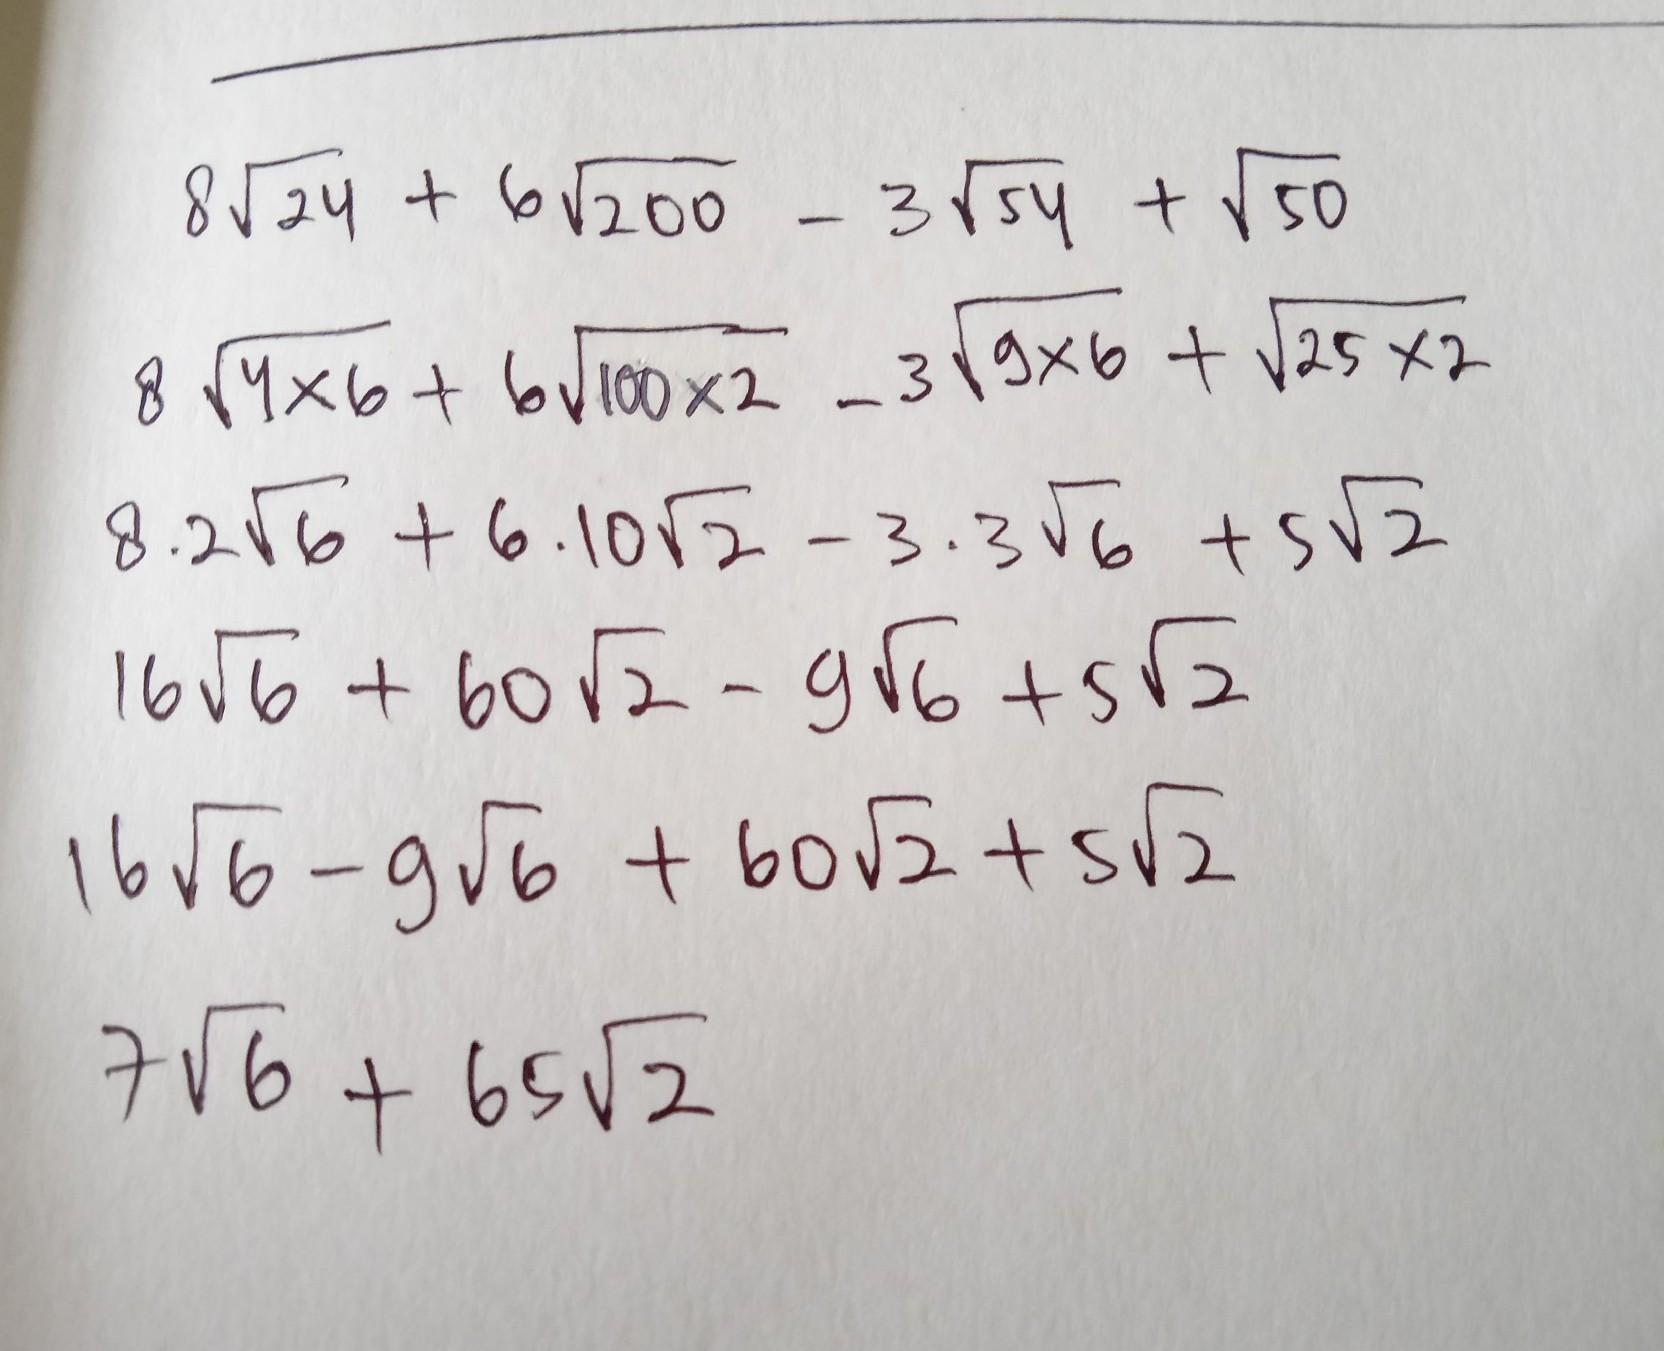 8√24 + 6√200 - 3√54 + √50
8√4×6 + 6√100×2 - 3√9×6 + √25×2
8.2√6 + 6.10√2 - 3.3√6 + 5√2
16√6 + 60√2 - 9√6 + 5√2
16√6 - 9√6 + 60√2 + 5√2
7√6 + 65√2